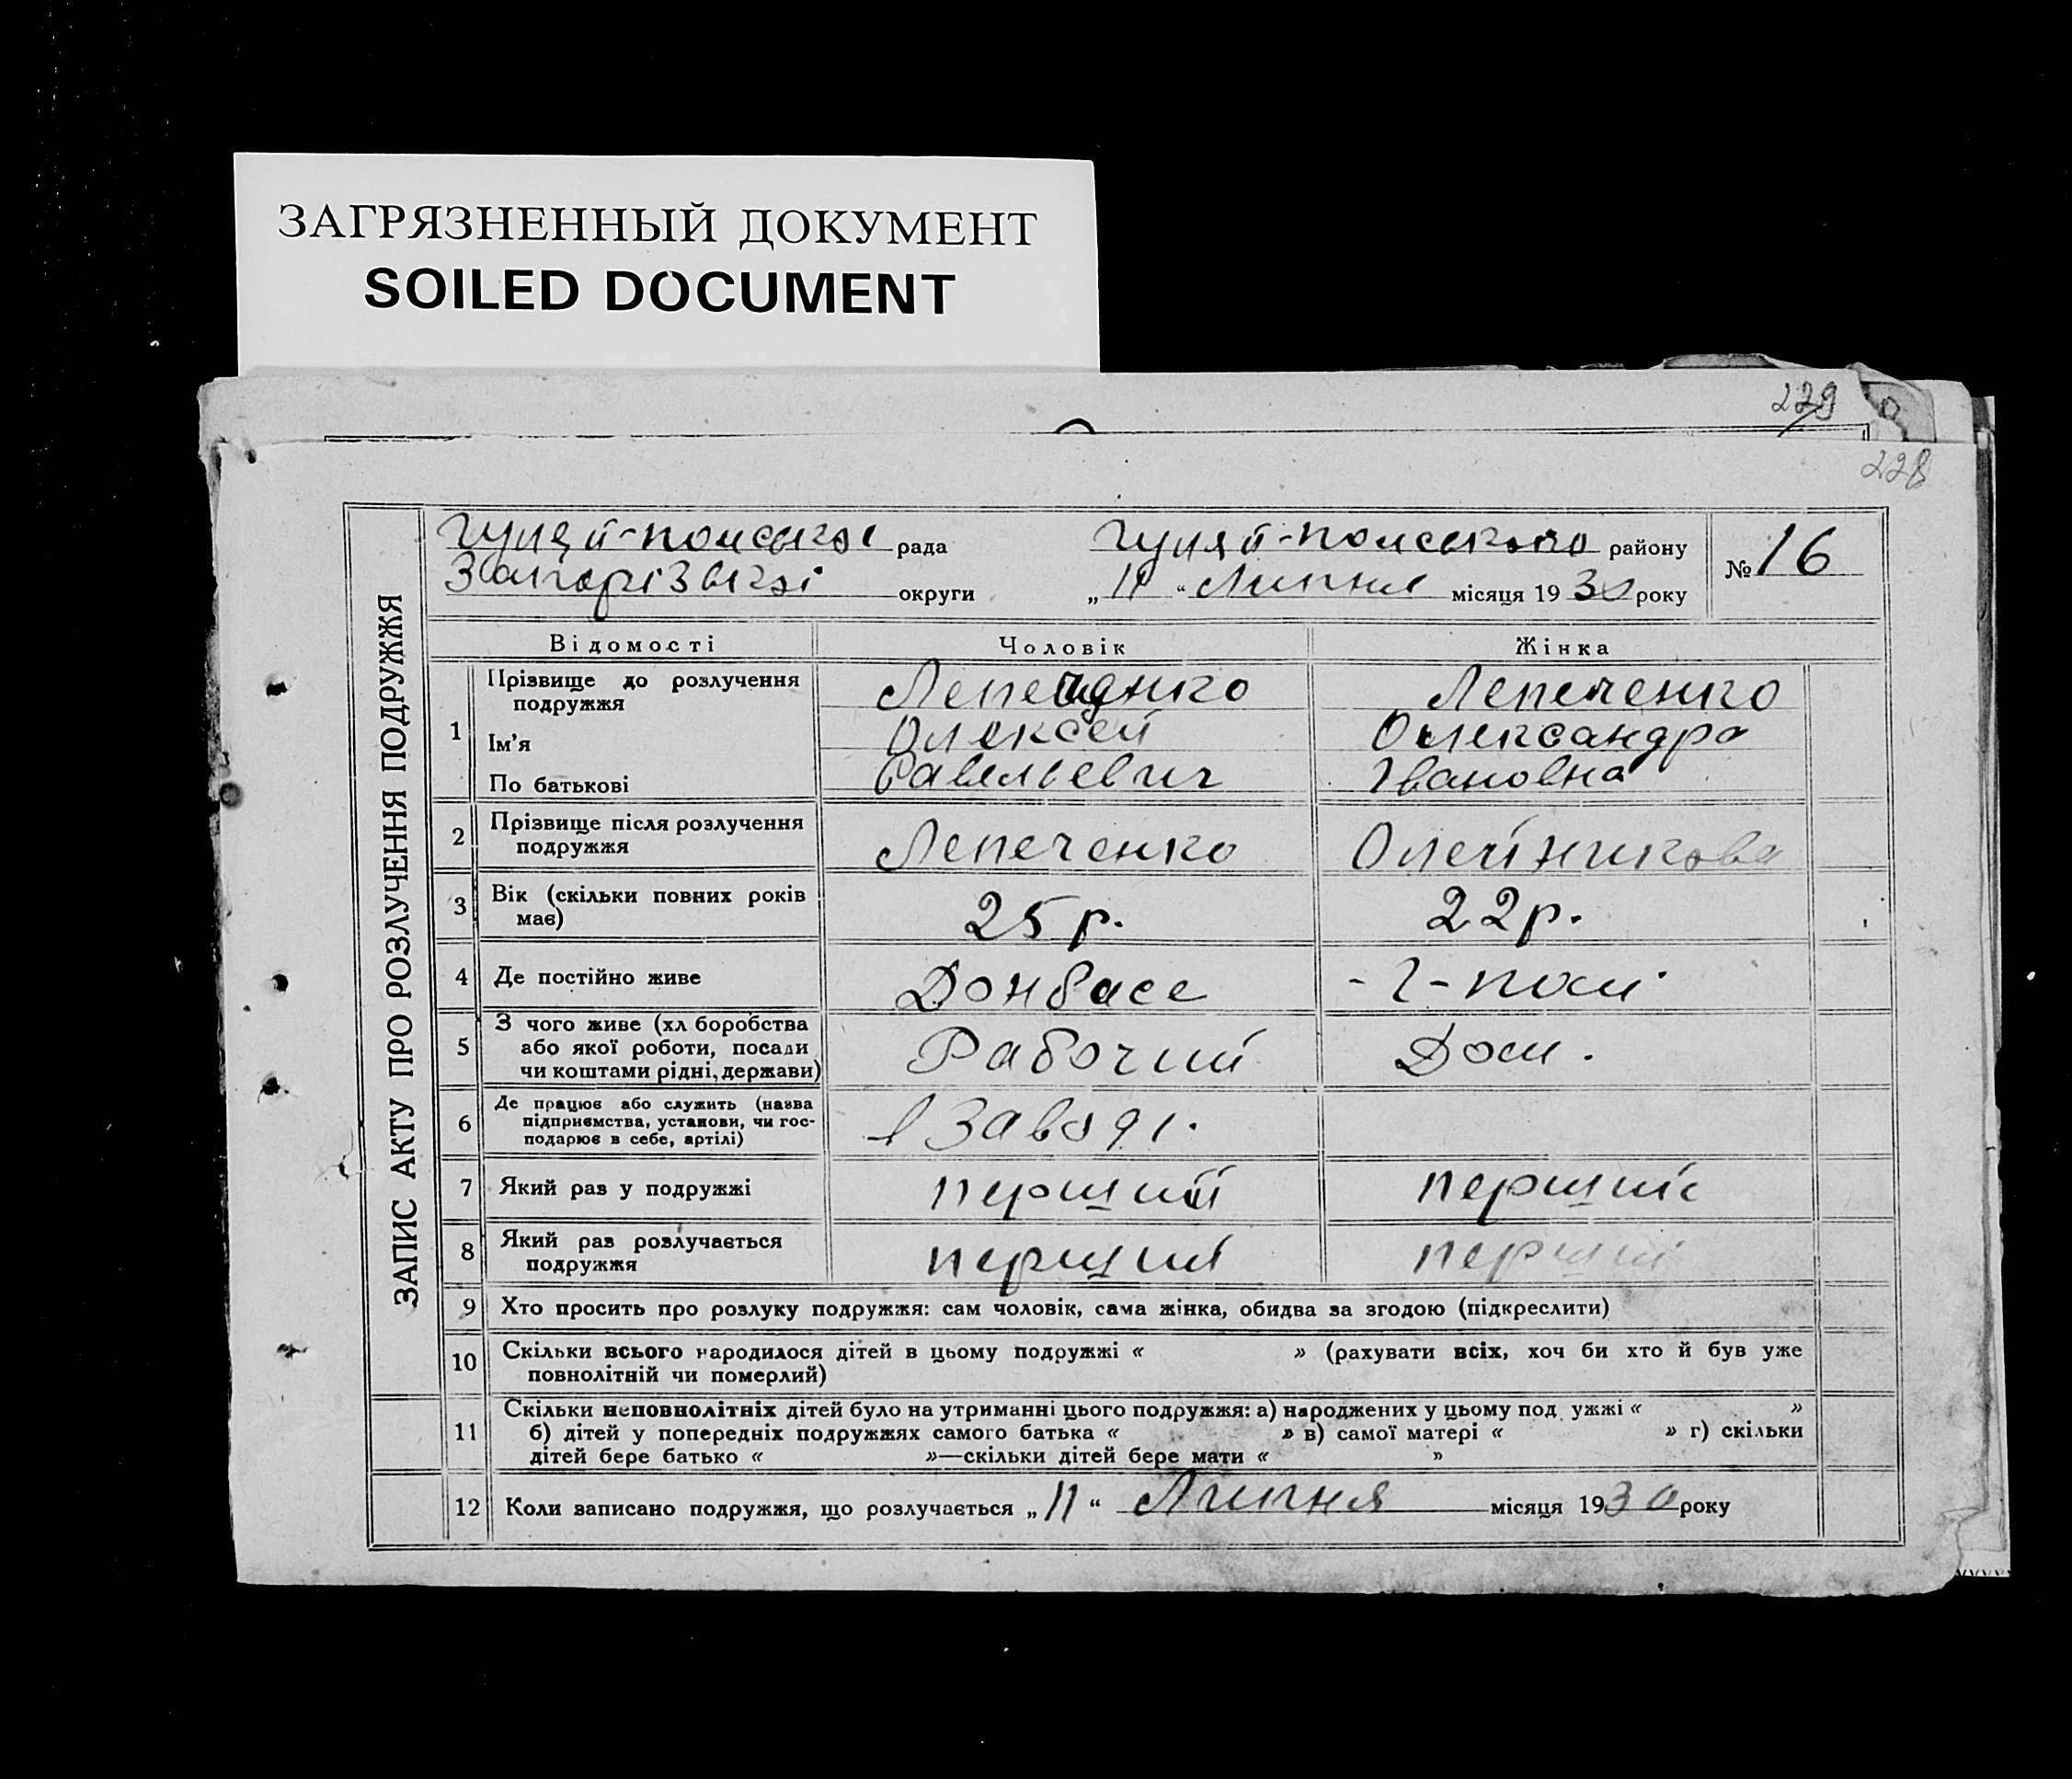 ЗАГРЯЗНЕННЫЙ ДОКУМЕНТ
SOILED DOCUMENT
229
228
ЗАПИС АКТУ ПРО РОЗЛУЧЕННЯ ПОДРУЖЖЯ
Гуляй-польської рада Гуляй-польського району № 16
Запорізької округи „11“ Липня місяця 1930 року
Відомості Чоловік Жінка
1 Прізвище до розлучення Лепеченко Лепеченко
подружжя
Ім'я Олексей Олександра
По батькові Савельевич Івановна
2 Прізвище після розлучення Лепеченко Олейникова
подружжя
3 Вік (скільки повних років 25 р. 22 р.
має)
4 Де постійно живе Донбасе - Г-поли
5 З чого живе (хл боробства Рабочий Дом.
або якої роботи, посади
чи коштами рідні, держави)
6 Де працює або служить (назва в Заводі.
підприємства, установи, чи гос-
подарює в себе, артілі)
7 Який раз у подружжі перший перший
8 Який раз розлучається перший перший
подружжя
9 Хто просить про розлуку подружжя: сам чоловік, сама жінка, обидва за згодою (підкреслити)
10 Скільки всього народилося дітей в цьому подружжі « » (рахувати всіх, хоч би хто й був уже
повнолітній чи померлий)
11 Скільки неповнолітніх дітей було на утриманні цього подружжя: а) народжених у цьому под ужжі « »
б) дітей у попередніх подружжях самого батька « » в) самої матері « » г) скільки
дітей бере батько « »—скільки дітей бере мати « »
12 Коли записано подружжя, що розлучається „11“ Липня місяця 1930 року